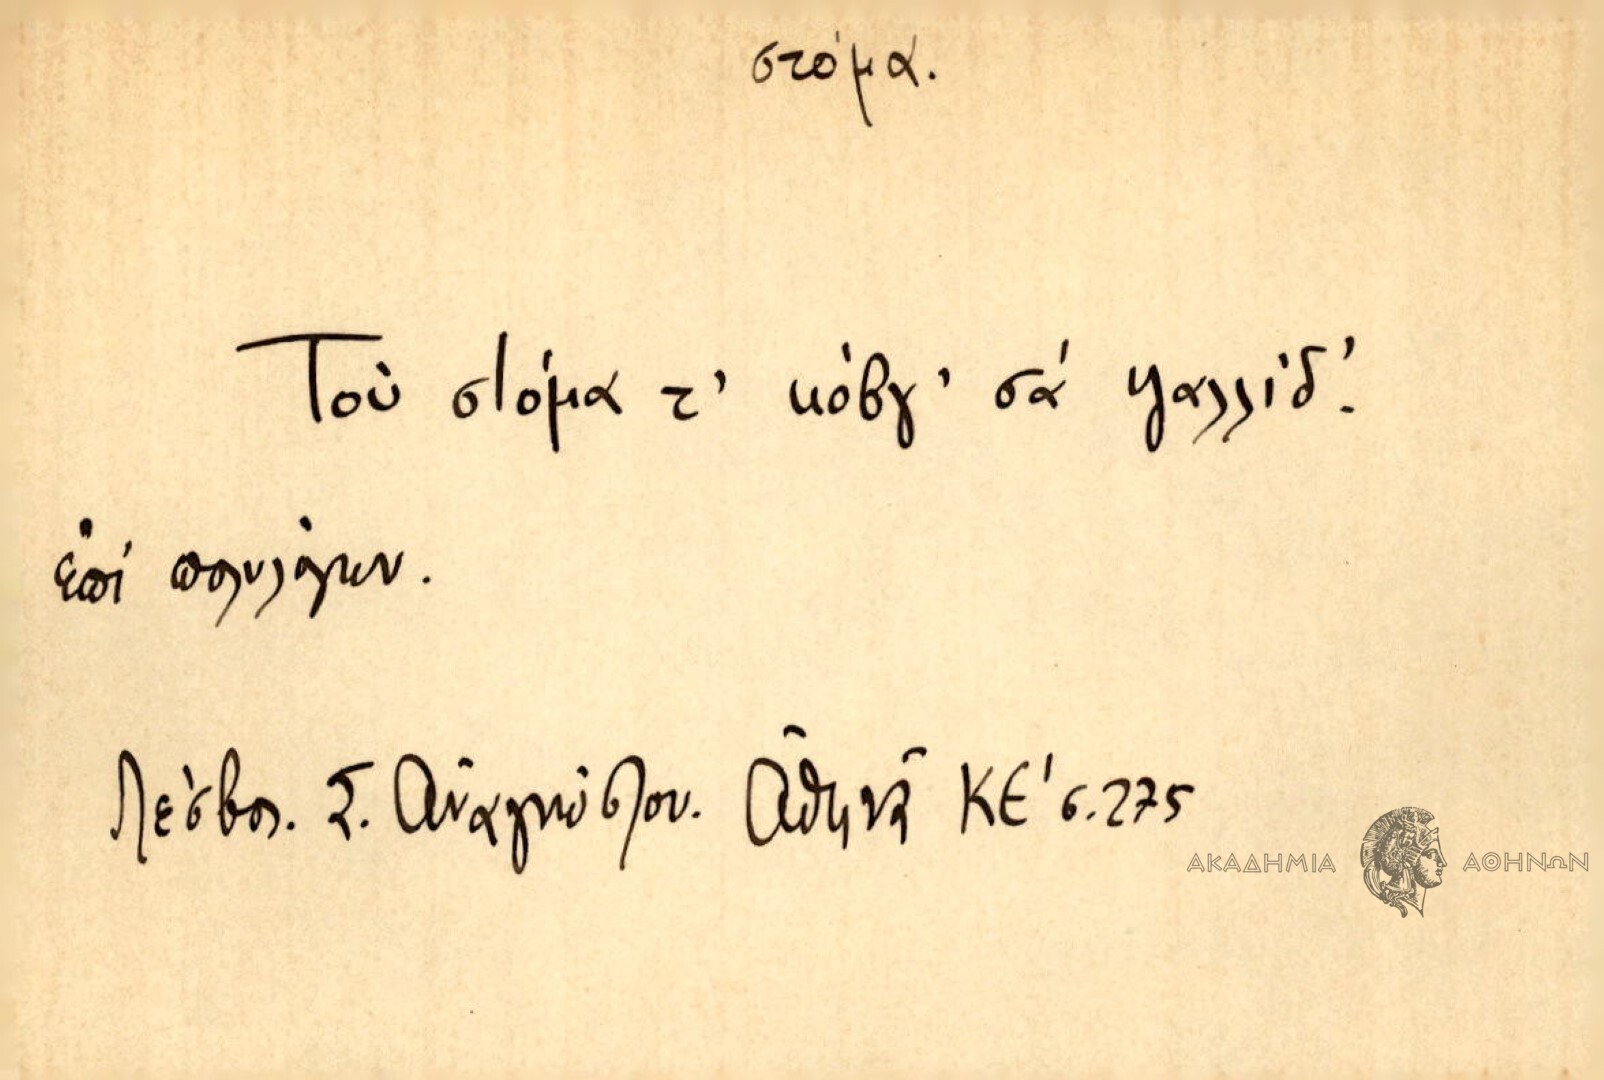 στόμα.
Τοὺ στόμα τ' κόβγ' σά ψαλλίδ'.
ἐπί πολυλόγων.
Λέσβος. Σ. Ἀναγνώστου. Ἀθηνᾶ ΚΕ' σ. 275
ΑΚΑΔΗΜΙΑ ΑΘΗΝΩΝ